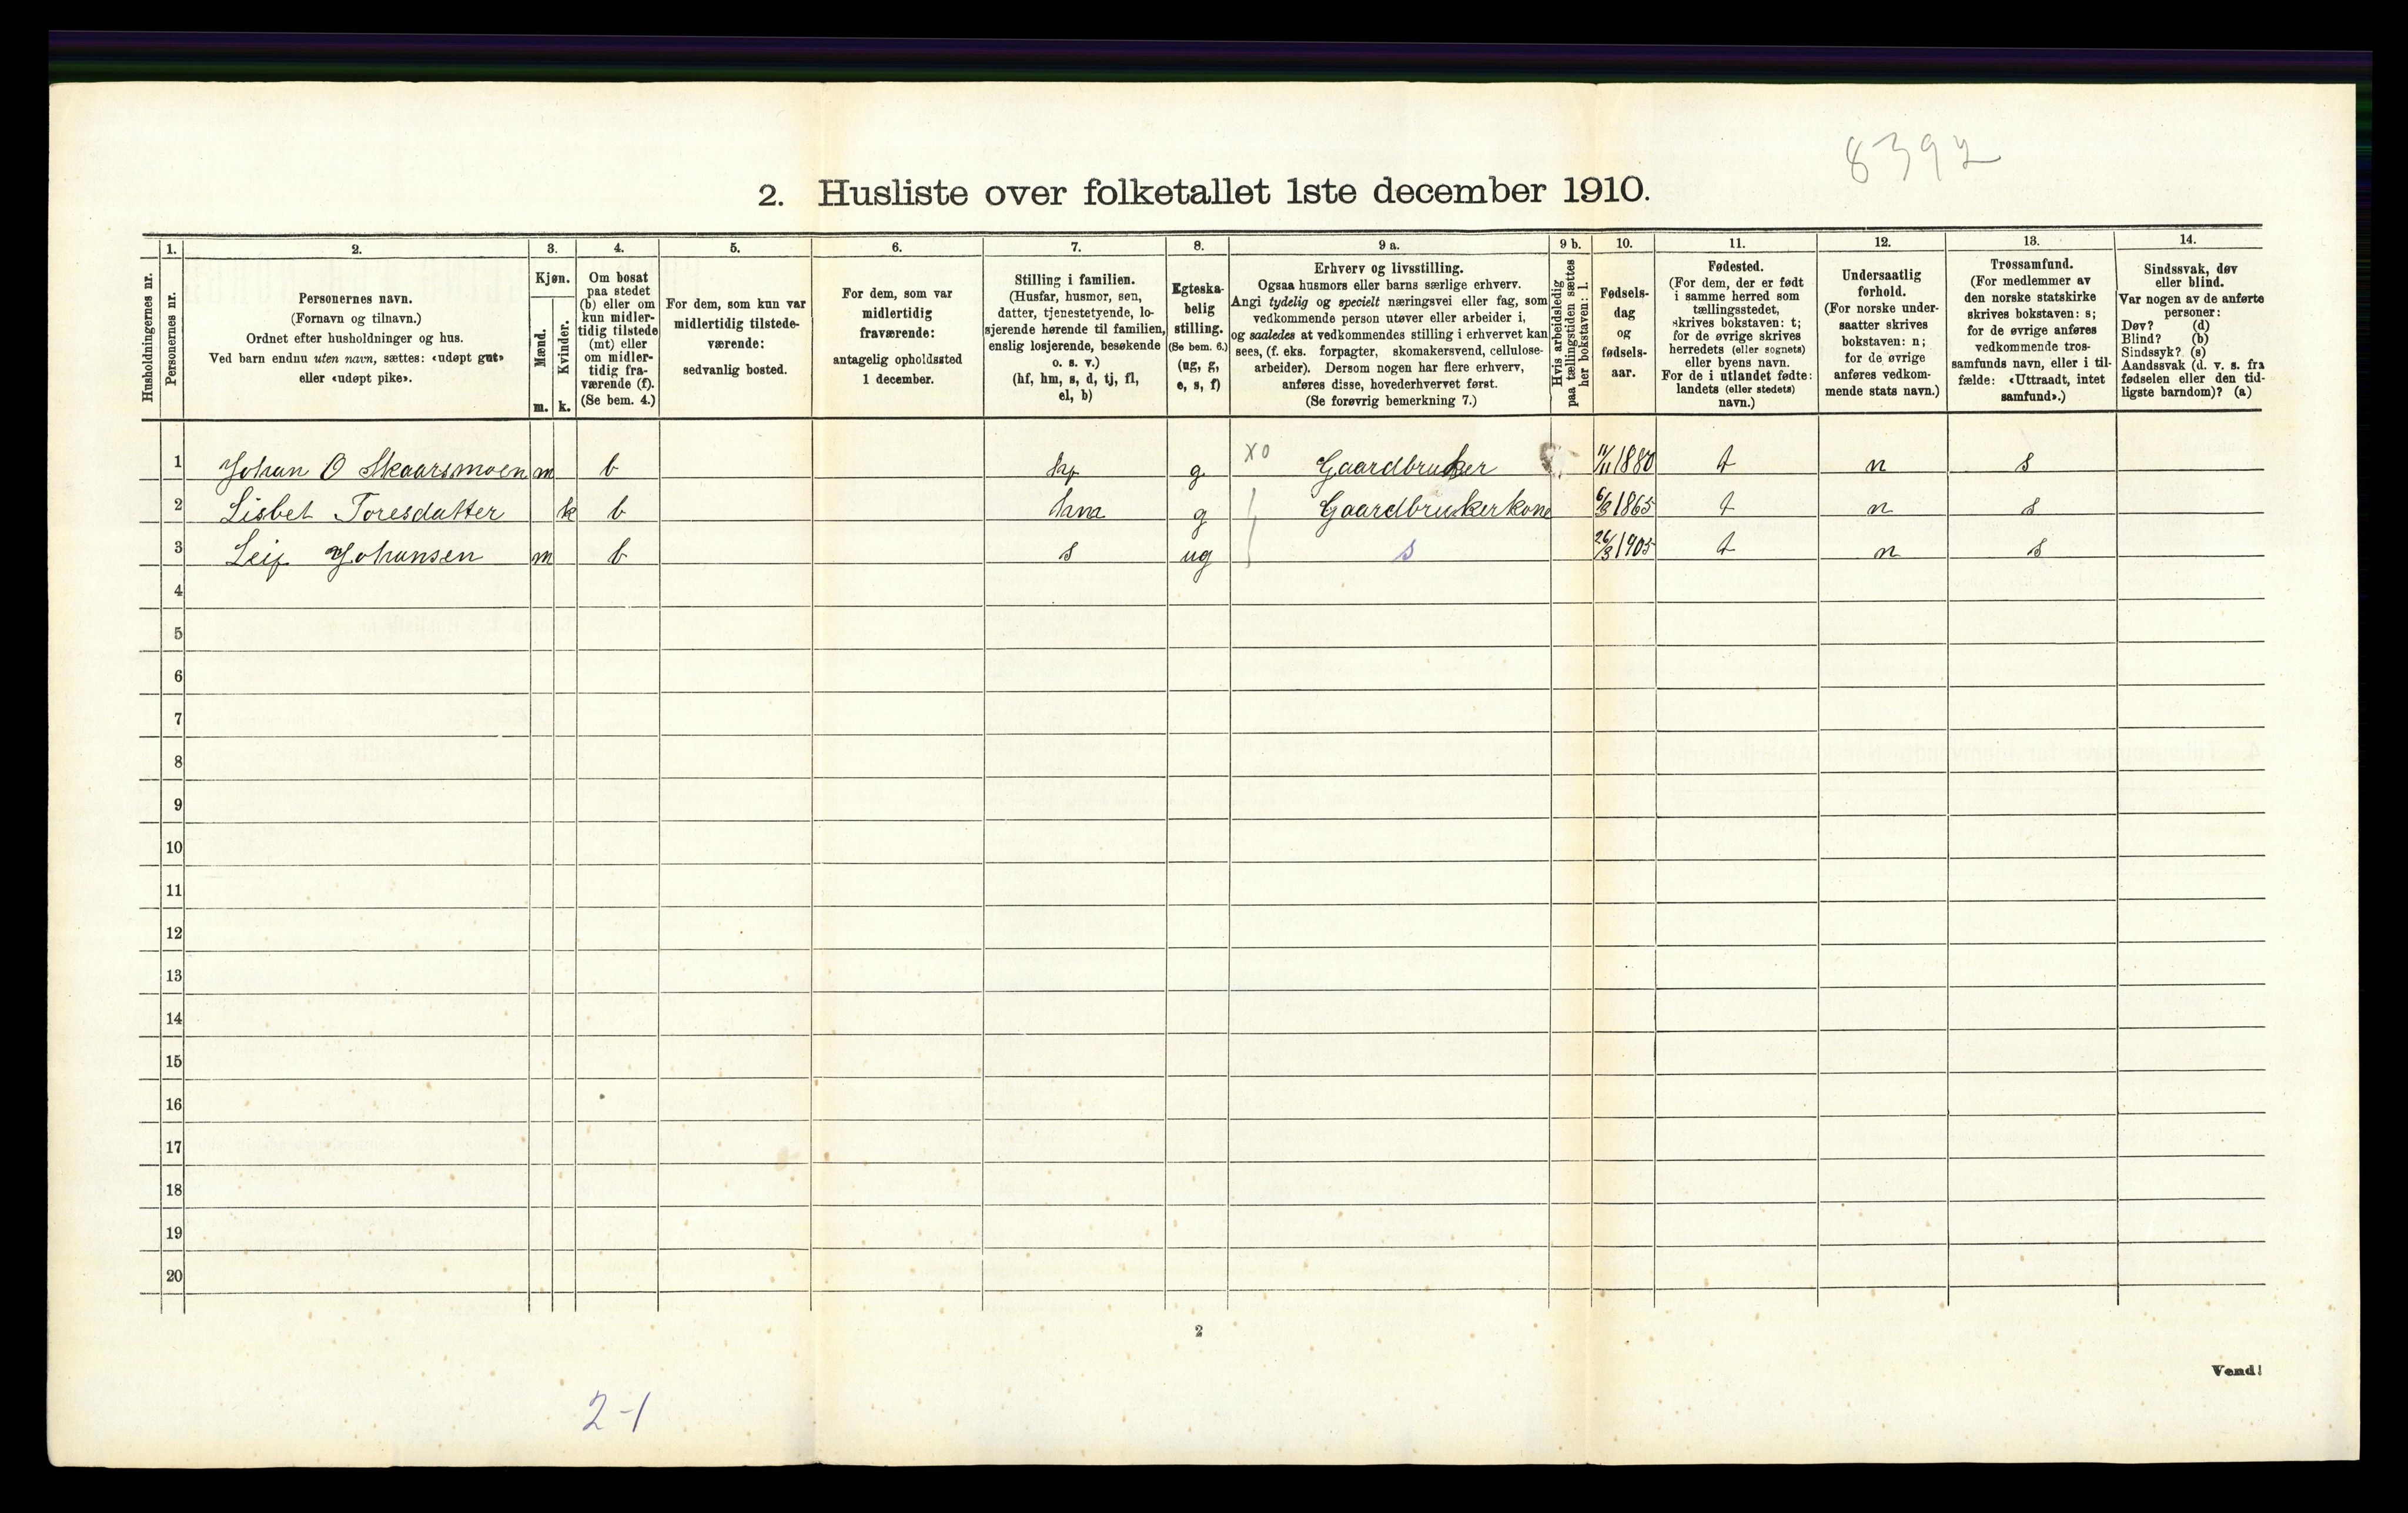 8392
2. Husliste over folketallet 1ste december 1910.
Husholdningernes nr.
1.
Personernes nr.
2.
Personernes navn.
(Fornavn og tilnavn.)
Ordnet efter husholdninger og hus.
Ved barn endnu uten navn, sættes: «udøpt gut»
eller «udøpt pike».
3.
Kjøn.
Mænd.
Kvinder.
m. k.
4.
Om bosat
paa stedet
(b) eller om
kun midler-
tidig tilstede
(mt) eller
om midler-
tidig fra-
værende (f).
(Se bem. 4.)
5.
For dem, som kun var
midlertidig tilstede-
værende:
sedvanlig bosted.
6.
For dem, som var
midlertidig
fraværende:
antagelig opholdssted
1 december.
7.
Stilling i familien.
(Husfar, husmor, søn,
datter, tjenestetyende, lo-
sjerende hørende til familien,
enslig losjerende, besøkende
o. s. v.)
(hf, hm, s, d, tj, fl,
el, b)
8.
Egteska-
belig
stilling.
(Se bem. 6.)
(ug, g,
e, s, f)
9 a.
Erhverv og livsstilling.
Ogsaa husmors eller barns særlige erhverv.
Angi tydelig og specielt næringsvei eller fag, som
vedkommende person utøver eller arbeider i,
og saaledes at vedkommendes stilling i erhvervet kan
sees, (f. eks. forpagter, skomakersvend, cellulose-
arbeider). Dersom nogen har flere erhverv,
anføres disse, hovederhvervet først.
(Se forøvrig bemerkning 7.)
9 b.
Hvis arbeidsledig
paa tællingstiden sættes
her bokstaven: l.
10.
Fødsels-
dag
og
fødsels-
aar.
11.
Fødested.
(For dem, der er født
i samme herred som
tællingsstedet,
skrives bokstaven: t;
for de øvrige skrives
herredets (eller sognets)
eller byens navn.
For de i utlandet fødte:
landets (eller stedets)
navn.)
12.
Undersaatlig
forhold.
(For norske under-
saatter skrives
bokstaven: n;
for de øvrige
anføres vedkom-
mende stats navn.)
13.
Trossamfund.
(For medlemmer av
den norske statskirke
skrives bokstaven: s;
for de øvrige anføres
vedkommende tros-
samfunds navn, eller i til-
fælde: «Uttraadt, intet
samfund».)
14.
Sindssvak, døv
eller blind.
Var nogen av de anførte
personer:
Døv? (d)
Blind? (b)
Sindssyk? (s)
Aandssvak (d. v. s. fra
fødselen eller den tid-
ligste barndom)? (a)
1 Johan O Skaarsmoen m b hf g x0 Gaardbruker 11/11 1880 t n s
2 Lisbet Toresdatter k b hm g Gaardbrukerkone 6/3 1865 t n s
3 Leif Johansen m b s ug s 26/3 1905 t n s
4
5
6
7
8
9
10
11
12
13
14
15
16
17
18
19
20
2
Vend!
2-1